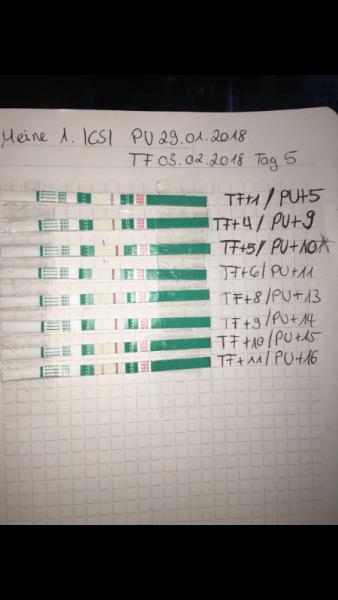 Meine 1. ICSI PU 29.01.2018
TF 03.02.2018 Tag 5
TF+1 / PU+5
TF+4 / PU+9
TF+5/ PU+10*
TF+6/PU+11
TF+8/PU+13
TF+9/PU+14
TF+10/PU+15
TF+11/PU+16